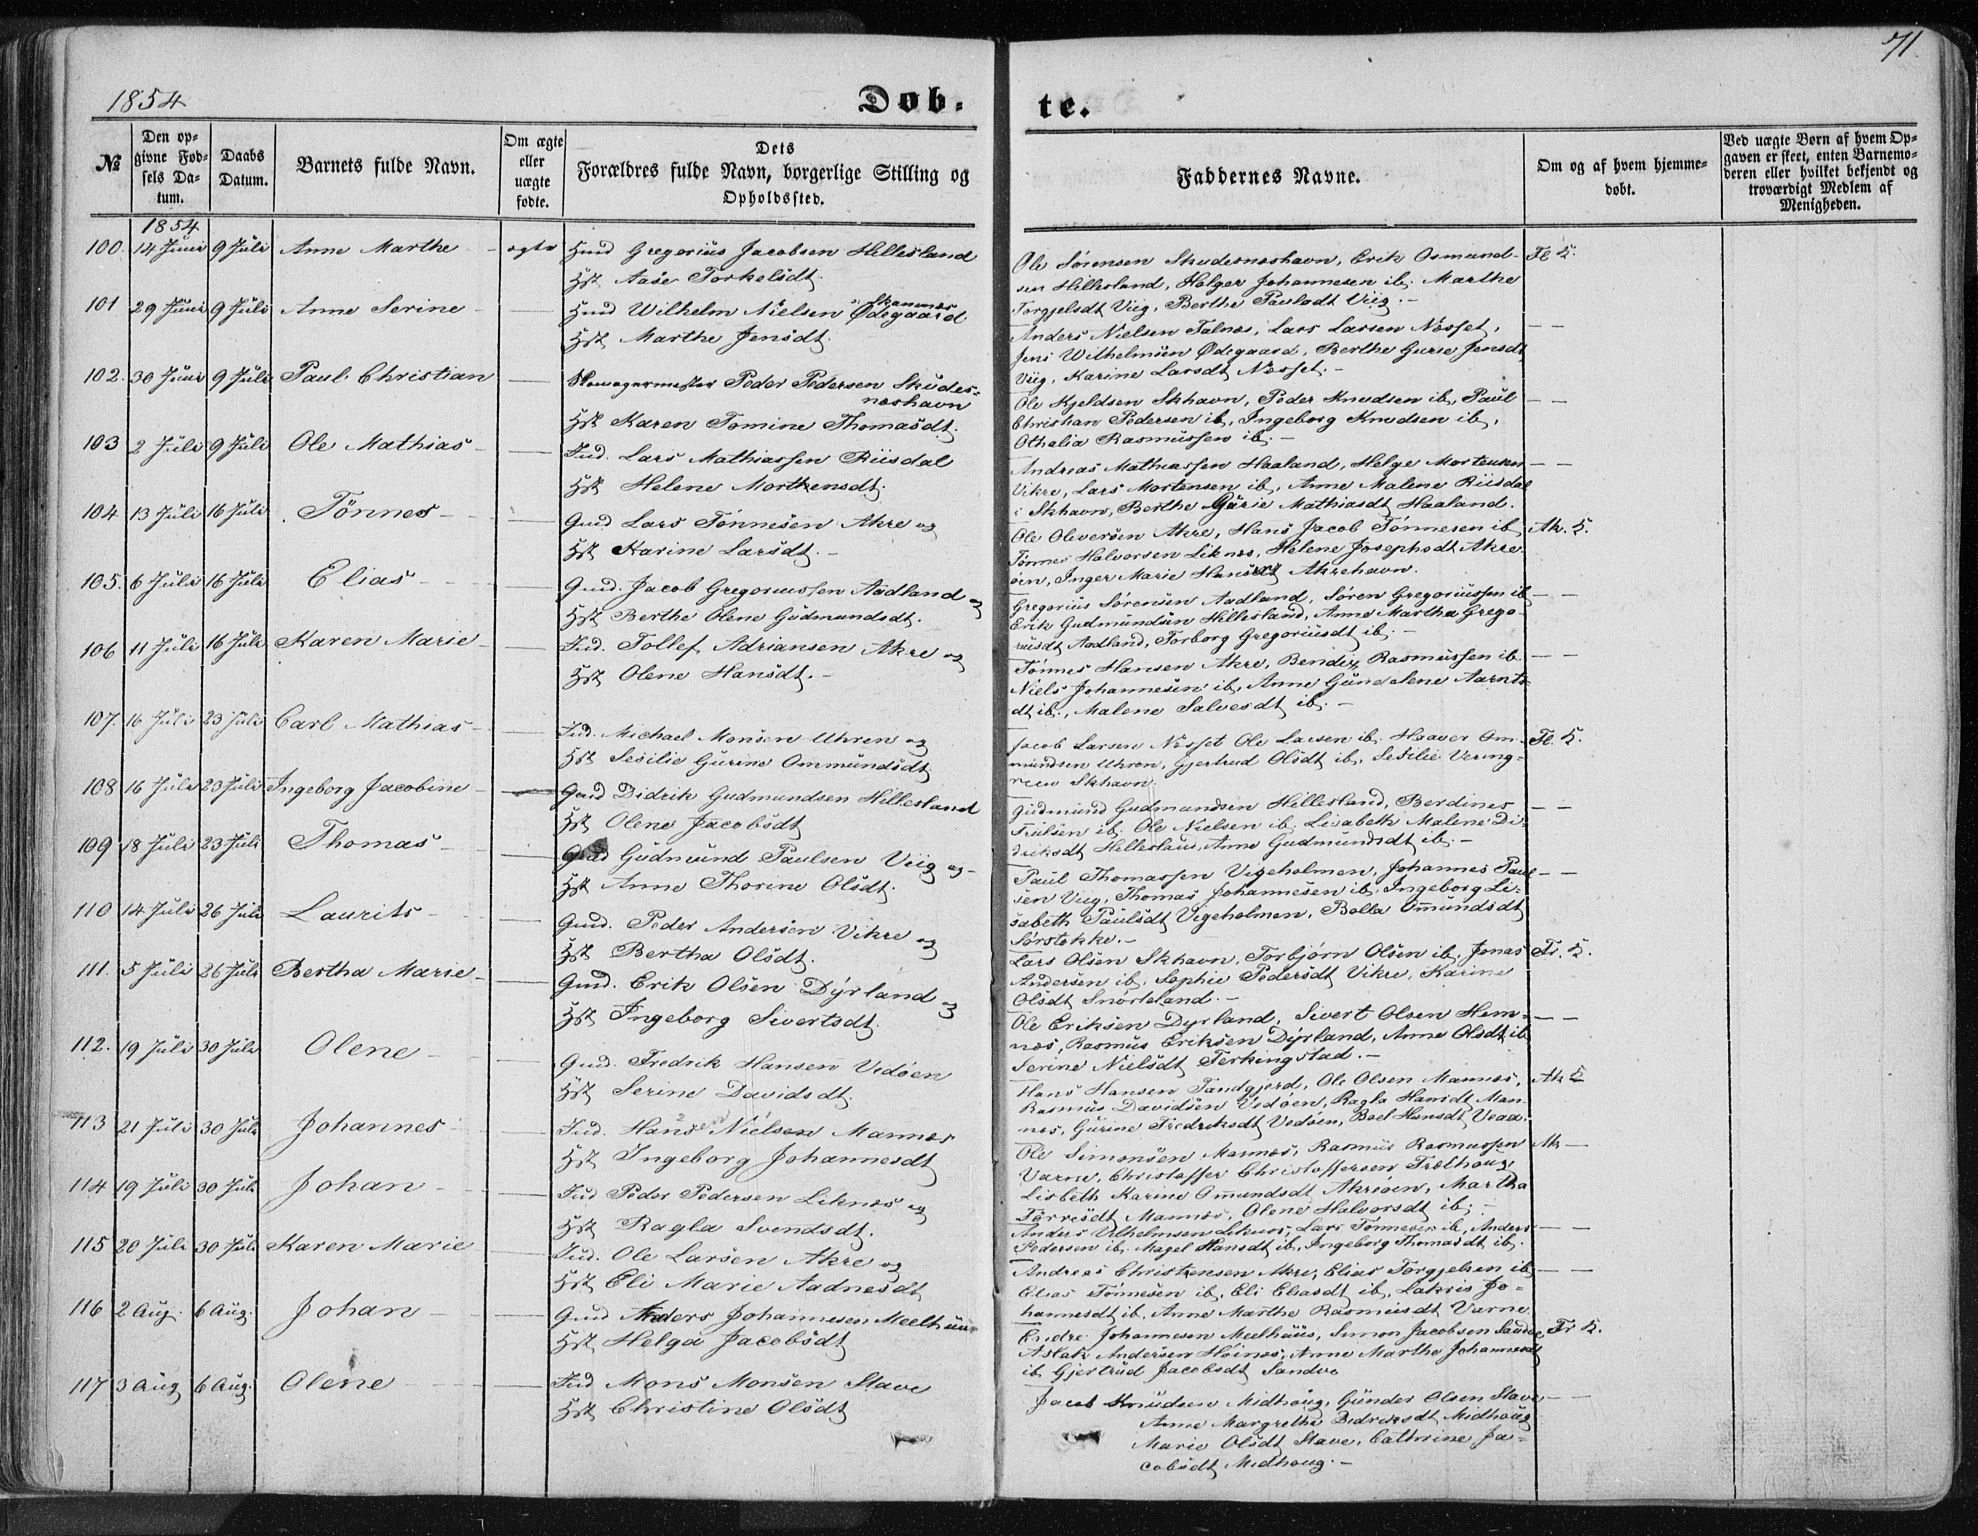 71.
1854
Døb-
te.
№
Den op-
givne Fød-
sels Da-
tum.
Daabs
Datum.
Barnets fulde Navn.
Om ægte
eller
uægte
fødte.
Dets
Forældres fulde Navn, borgerlige Stilling og
Opholdssted.
Faddernes Navne.
Om og af hvem hjemme-
døbt.
Ved uægte Børn af hvem Op-
gaven er skeet, enten Barnemo-
deren eller hvilket bekjendt og
troværdigt Medlem af
Menigheden.
1854
100. 14 Juni 9 Juli Anne Marthe - ægte Gmd Gregorius Jacobsen Hillesland
Hst Aase Torkelsdt.
101 29 Juni 9 Juli Anne Serine - — Hmd Wilhelm Nielsen Ødegaard
Hst Marthe Jensdt.
102. 30 Juni 9 Juli Paul Christian — Skomagermester Peder Pedersen Skudes-
næshavn
Hst Karen Tomine Thomasdt.
103 2 Juli 9 Juli Ole Mathias - — Ind. Lars Mathiassen Riisdal
Hst Helene Mortensdt.
104. 13 Juli 16 Juli Tönnes - — Gmd Lars Tönnesen Akre og
Hst Karine Larsdt. -
105. 6 Juli 16 Juli Elias - — Gmd. Jacob Gregoriussen Aadland og
Hst Berthe Olene Gudmundsdt.
106 11 Juli 16 Juli Karen Marie - — Ind. Tollef Adriansen Akre og
Hst Olene Hansdt. -
107. 16 Juli 23 Juli Carl Mathias - — Ind. Michael Monsen Uhren og
Hst Sesilie Gurine Ommundsdt.
108 16 Juli 23 Juli Ingeborg Jacobine - — Gmd Didrik Gudmundsen Hillesland
Hst Olene Jacobsdt
109 18 Juli 23 Juli Thomas - — Gmd Gudmund Paulsen Viig og -
Hst Anne Thorine Olsdt.
110 14 Juli 26 Juli Laurits - — Gmd. Peder Andersen Vikre og
Hst Bertha Olsdt.
111. 5 Juli 26 Juli Bertha Marie - — Gmd. Erik Olsen Dyrland og
Hst Ingeborg Sivertsdt.
112. 19 Juli 30 Juli Olene - — Gmd. Fredrik Hansen Vedøen
Hst Serine Davidsdt.
113 21 Juli 30 Juli Johannes - — Ind. Hans Nielsen Mannes
Hst Ingeborg Johannesdt
114 19 Juli 30 Juli Johan - — Ind Peder Pedersen Liknes og
Hst Ragla Svendsdt.
115 20 Juli 30 Juli Karen Marie — Ind. Ole Larsen Akre og
Hst Eli Marie Aadnesdt
116 2 Aug. 6 Aug. Johan - — Gmd Anders Johannesen Meelhuus
Hst Helga Jacobsdt
117 3 Aug 6 Aug. Olene - — Ind Mons Monsen Stave
Hst Christine Olsdt
Ole Sørensen Skudesnæshavn, Erik Osmund- Fl K.
sen Hillesland, Holger Johannesen ib, Marthe
Torgjelsdt Viig, Berthe Paulsdt Viig. -
Anders Nielsen Falnæs, Lars Larsen Nesset, — —
Jens Wilhelmsen Ødegaard, Berthe Gurse Jensdt
Viig, Karine Larsdt Nesset. -
Ole Kjeldsen Skhavn, Peder Knudsen ib, Paul — —
Christian Pedersen ib, Ingeborg Knudsen ib,
Othelia Rasmussen ib. -
Andreas Mathiassen Haaland, Helge Mortensen — —
Vikre, Lars Mortensen ib, Anne Malene Riisdal
i Skhavn, Berthe Gurie Mathiasdt Haaland.
Ole Oleversen Akre, Hans Jacob Tönnesen ib Ak. K.
Tönnes Halvorsen Liknes, Helene Josephsdt Akre
öen, Inger Marie Hansdt Akrehavn.
Gregorius Sørensen Aadland, Søren Gregoriussen ib — —
Erik Gudmundsen Hillesland, Anne Martha Grego-
riusdt Aadland, Torborg Gregoriusdt ib. -
Tönnes Hansen Akre, Bendix Rasmussen ib — —
Niels Johannesen ib, Anne Gunelene Aarnts-
dt ib, Malene Salvesdt ib. -
Jacob Larsen Nesset Ole Larsen ib. Haaver Om- Fl. K.
mundsen Uhren, Gjertrud Olsdt ib, Sesilie Vering-
reen Skhavn.
Gudmund Gudmundsen Hillesland, Berdines — —
ib. Ole Nielsen ib. Lisabeth Malene Di-
driksdt Hillesland, Anne Gudmundsdt ib. -
Paul Thomassen Vigeholmen, Johannes Paul — —
sen Viig, Thomas Johannesen ib, Ingeborg Li-
sabeth Paulsdt Vigeholmen, Bolla Omundsdt
Sørstokke. -
Lars Olsen Skhavn, Torbjørn Olsen ib, Jonas Fr. K.
Andersen ib, Sophie Pedersdt Vikre, Karine
Olsdt Snörteland. -
Ole Eriksen Dyrland, Sivert Olsen Hem- — —
næs, Rasmus Eriksen Dyrland, Anne Olsdt ib
Serine Nielsdt Ferkingstad. -
Hans Hansen Tandgjerd, Ole Olsen Mannes, Ak K
Rasmus Davidsen Vedøen, Ragla Hansdt Man-
nes, Gurine Fredriksdt Vedøen, Boel Hansdt Veaa.
Ole Simonsen Mannes, Rasmus Rasmussen Ak —
Varne, Christoffer Christoffersen Trælhoug
Lisbeth Karine Omundsdt Akrøen, Martha
Torresdt Mannes, Olene Halvorsdt ib. -
Anders Vilhelmsen Liknes, Lars Tönnesen ib, Anders — —
Pedersen ib, Magel Hansdt ib, Ingeborg Thomasdt ib.
Andreas Christensen Akre, Elias Torgjelsen ib — —
Elias Tönnesen ib, Eli Eliasdt ib, Lakris Jo-
hannesdt ib. Anne Marthe Rasmusdt Varne.
Endre Johannesen Meelhuus, Simon Jacobsen Sandve Fr K.
Aslak Andersen Høines, Anne Martha Johannesdt
ib Gjertrud Jacobsdt Sandve
Jacob Knudsen Midhoug, Gunder Olsen Stave — —
Anne Margrethe Didriksdt Midhoug
Marie Olsdt Stave, Cathrine Ja-
cobsdt Midhoug. -